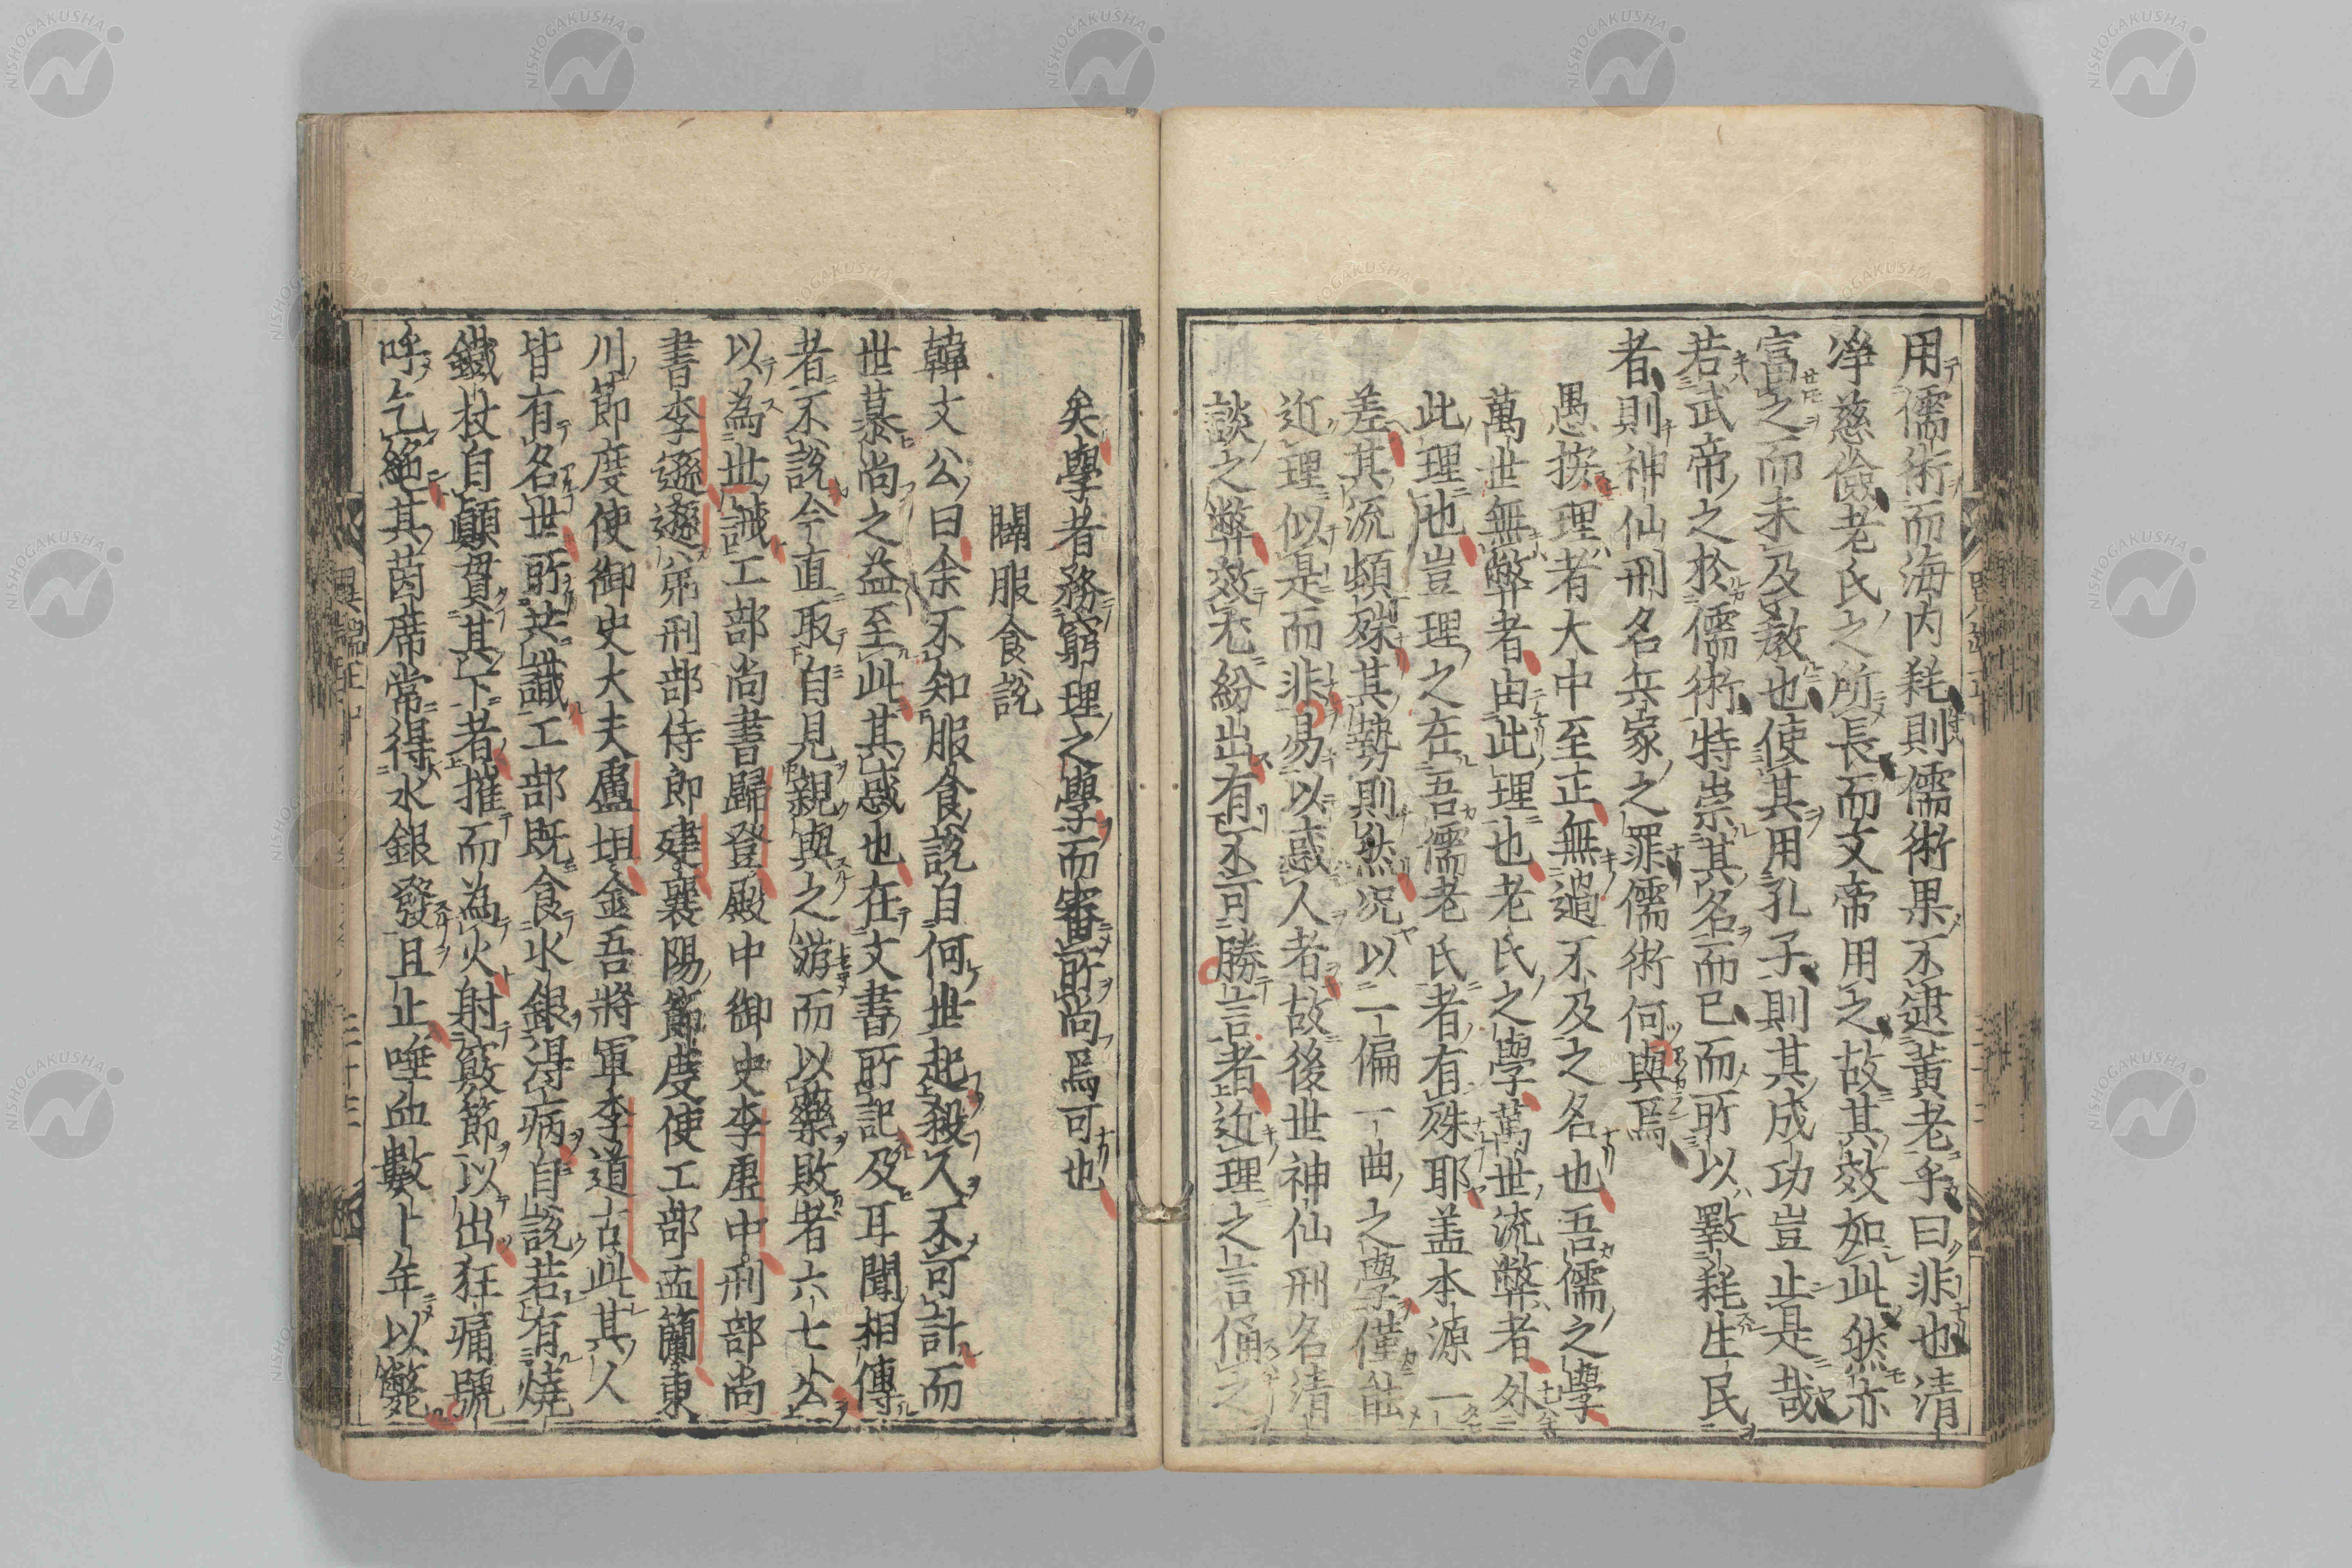 用儒術而海内耗則儒術果不逮黃老乎曰非也清
淨慈儉老氏之所長而文帝用之故其效如此然亦
富之而未及敎也使其用孔子則其成功豈止是哉
若武帝之於儒術特崇其名而已而所以斁耗生民
者則神仙刑名兵家之罪儒術何與焉
愚按理者大中至正無過不及之名也吾儒之學
萬世無弊者由此理也老氏之學萬世流弊者外
此理也豈理之在吾儒老氏者有殊耶盖本源一
差其流頓殊其勢則然况以一偏一曲之學僅能
近理似是而非易以惑人者故後世神仙刑名清
談之弊效尤紛出有不可勝言者近理之言俑之
矣學者務窮理之學而審所尚焉可也
闢服食說
韓文公曰余不知服食說自何世起殺人不可計而
世慕尚之益至此其惑也在文書所記及耳聞相傳
者不說今直取自見親與之游而以藥敗者六七公
以為世誡工部尚書歸登殿中御史李虛中刑部尚
書李遜遜弟刑部侍郎建襄陽節度使工部孟蕳東
川節度使御史大夫盧坦金吾將軍李道古此其人
皆有名世所共識工部既食水銀得病自說若有燒
鐵杖自顚貫其下者摧而為火射竅節以出狂痛號
呼乞絶其茵席常得水銀發且止唾血數十年以斃
異端正
三十三
NISHOGAKUSHA